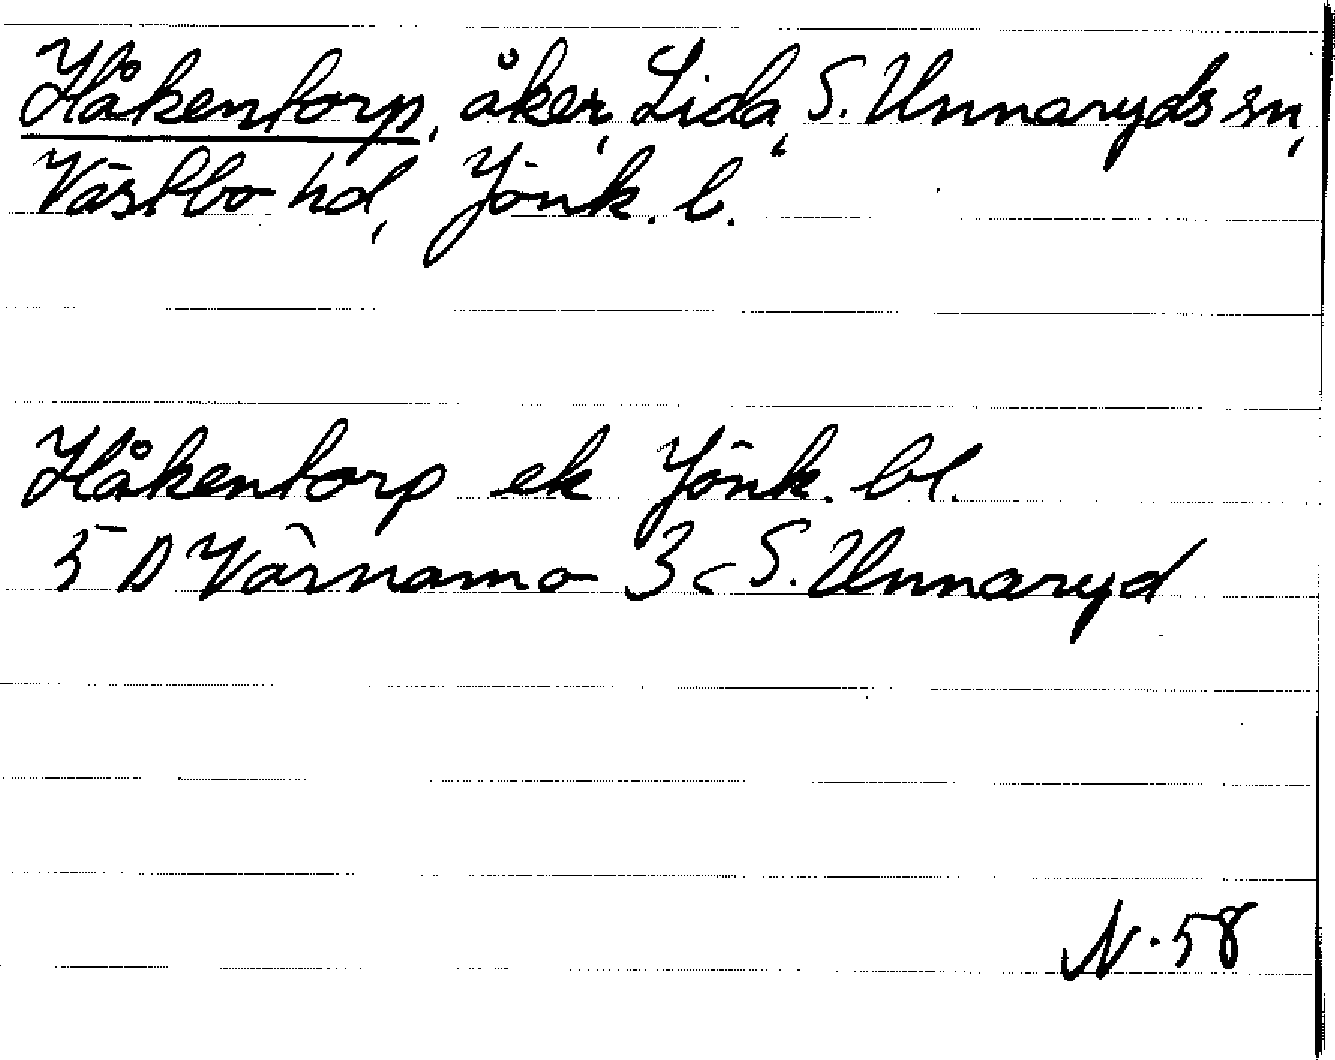 Håkentorp, åker, Lida, S. Unnaryds sn,
Västbo hd, Jönk. l.
Håkentorp ek Jönk. bl.
5 D Värnamo 3c S. Unnaryd
N. 58